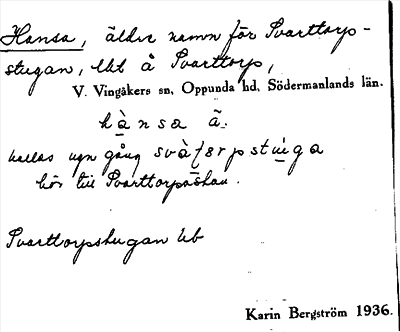 Hansa, äldre namn för Svarttorp-
stugan, lht å Svarttorp,
V. Vingåkers sn, Oppunda hd, Södermanlands län.
hà nsa ã.
kallas ngn gång svàʈɛrpstúga
hör till Svarttorpaskau.
Svarttorpstugan lht
Karin Bergström 1936.